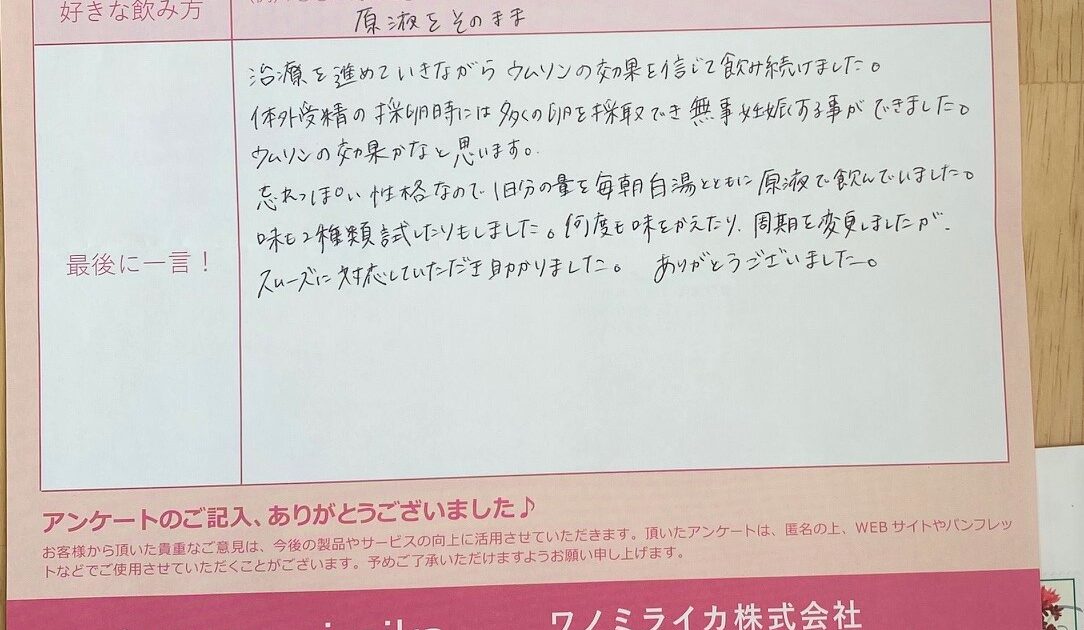 好きな飲み方
原液をそのまま
治療を進めていきながら ウムソンの効果を信じて飲み続けました。
体外受精の採卵時には多くの卵を採取でき無事妊娠する事ができました。
ウムソンの効果かなと思います。
忘れっぽい性格なので1日分の量を毎朝白湯とともに原液で飲んでいました。
味も2種類試したりもしました。何度も味をかえたり、周期を変更しましたが、
スムーズに対応していただき助かりました。 ありがとうございました。
最後に一言！
アンケートのご記入、ありがとうございました♪
お客様から頂いた貴重なご意見は、今後の製品やサービスの向上に活用させていただきます。頂いたアンケートは、匿名の上、WEBサイトやパンフレッ
トなどでご使用させていただくことがございます。予めご了承いただけますようお願い申し上げます。
ワノミライカ株式会社